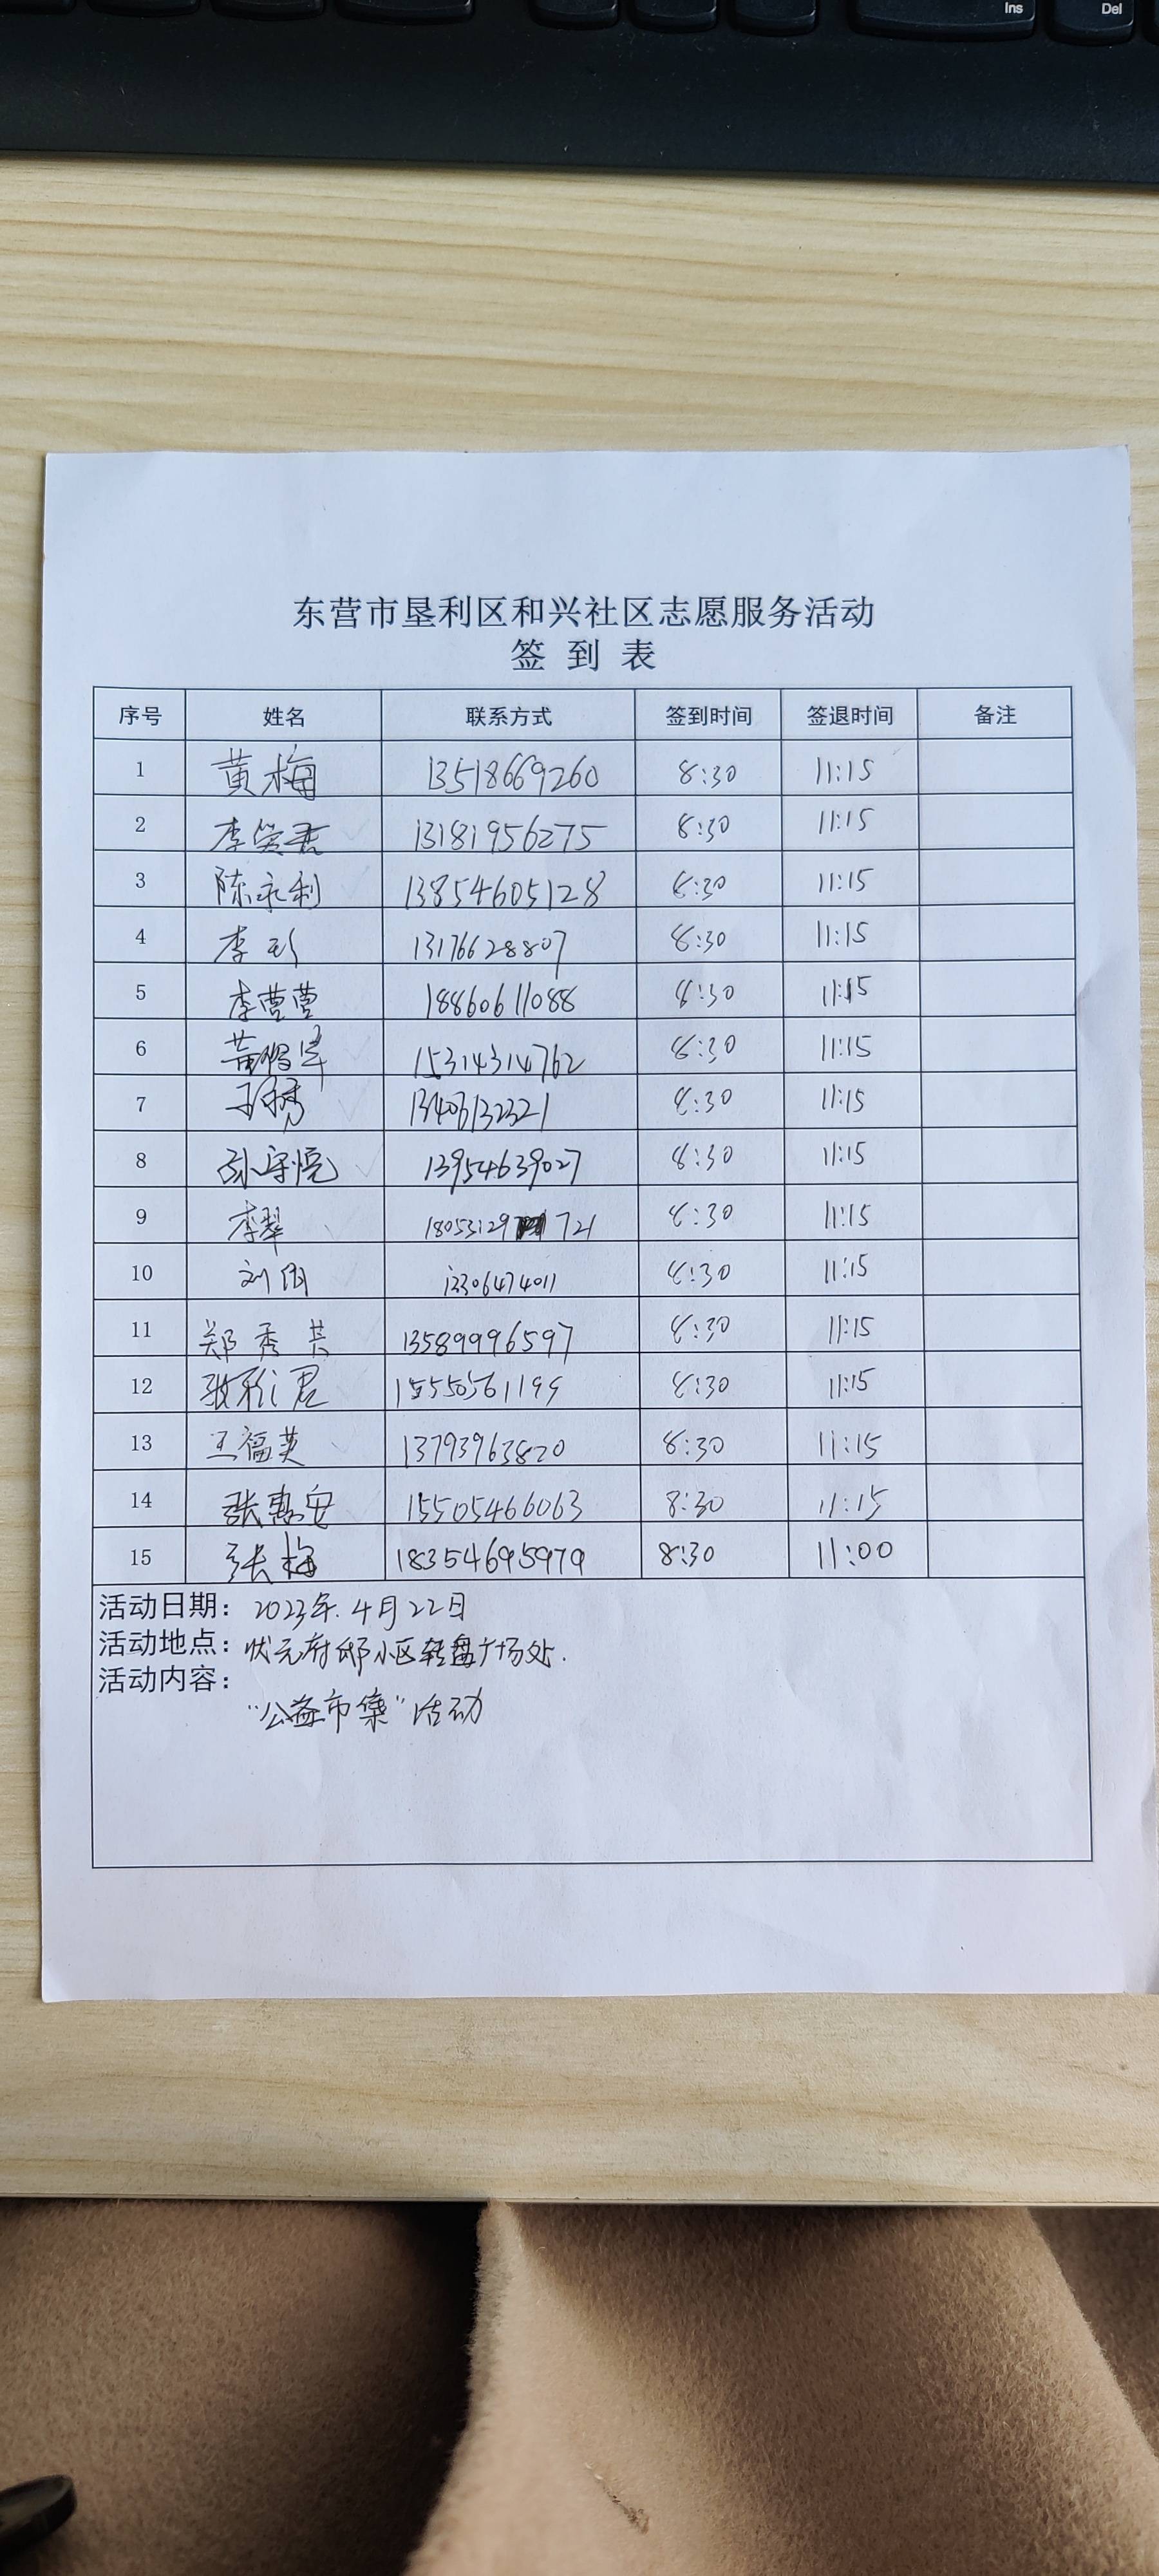 Ins Del
东营市垦利区和兴社区志愿服务活动
签 到 表
序号 姓名 联系方式 签到时间 签退时间 备注
1 黄梅 13518669260 8:30 11:15
2 李荣君 13181956275 8:30 11:15
3 陈永利 13854605128 8:30 11:15
4 李 13176628807 8:30 11:15
5 李莹莹 18860611088 8:30 11:15
6 黄 15314314762 8:30 11:15
7 秀 8:30 11:15
8 孙宇悦 13954639027 8:30 11:15
9 李翠 18053129 721 8:30 11:15
10 刘 8:30 11:15
11 郑秀芸 13589996597 8:30 11:15
12 君 15550561199 8:30 11:15
13 王福英 13793963820 8:30 11:15
14 张惠安 15505466063 8:30 11:15
15 张梅 18354695979 8:30 11:00
活动日期：2023年.4月22日
活动地点：状元府邸小区转盘广场处.
活动内容：
“公益市集”活动